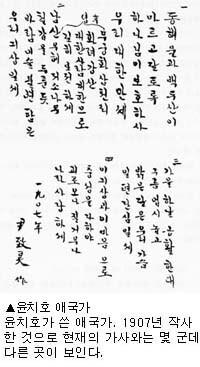 동해물과 백두산이
마르고 달토록
하나님이 보호하사
우리 대한 만세
무궁화 삼천리
화려강산
대한사람 대한으로
길이 보전하세
바람이슬 불변함은
우리 긔상일세
三
가을하날 공활한대
구름업시 놉고
밝은달은 우리가슴
일편단심일세
이긔상과 이마음으로
충성을 다하야
괴로오나 질거우나
나라사랑하세
一九○七年
尹致昊 作
▲윤치호 애국가
윤치호가 쓴 애국가. 1907년 작사
한 것으로 현재의 가사와는 몇 군데
다른 곳이 보인다.